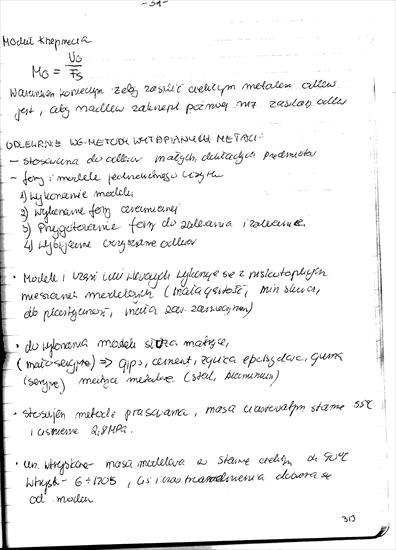 - 31 -
Moduł krzepnięcia
Mo = Vo / Fs
Warunkiem koniecznym żeby zasilić ciekłym metalem odlew
jest, aby nadlew zakrzepł później niż zasilany odlew
ODLEWANIE WG METODY WYTAPIANYCH METALI:
- stosowana do odlewu małych, dokładnych przedmiotów
- formy i modele jednorazowego użytku
1) wykonanie modelu
2) wykonanie formy ceramicznej
3) Przygotowanie formy do zalewania i zalewanie
4) wybijanie oczyszczanie odlewu
• Modele i wlewowych wykonuje się z niskotopliwych
mieszanek modelowych (mała gęstość, min skurcz,
db plastyczność, mała)
• do wykonania modeli służą matryce,
(małoseryjne) => gips, cement, żywica epoksydowa, guma
(seryjne) matryce metalowe (stal, aluminium)
• stosując metodę prasowania, masa w stanie 55°C
i ciśnienie 2,8 MPa.
• masa modelowa w stanie ciekłym ok 90°C
wtrysk - 6÷120s, ciś i czas dobiera się
od modelu
313